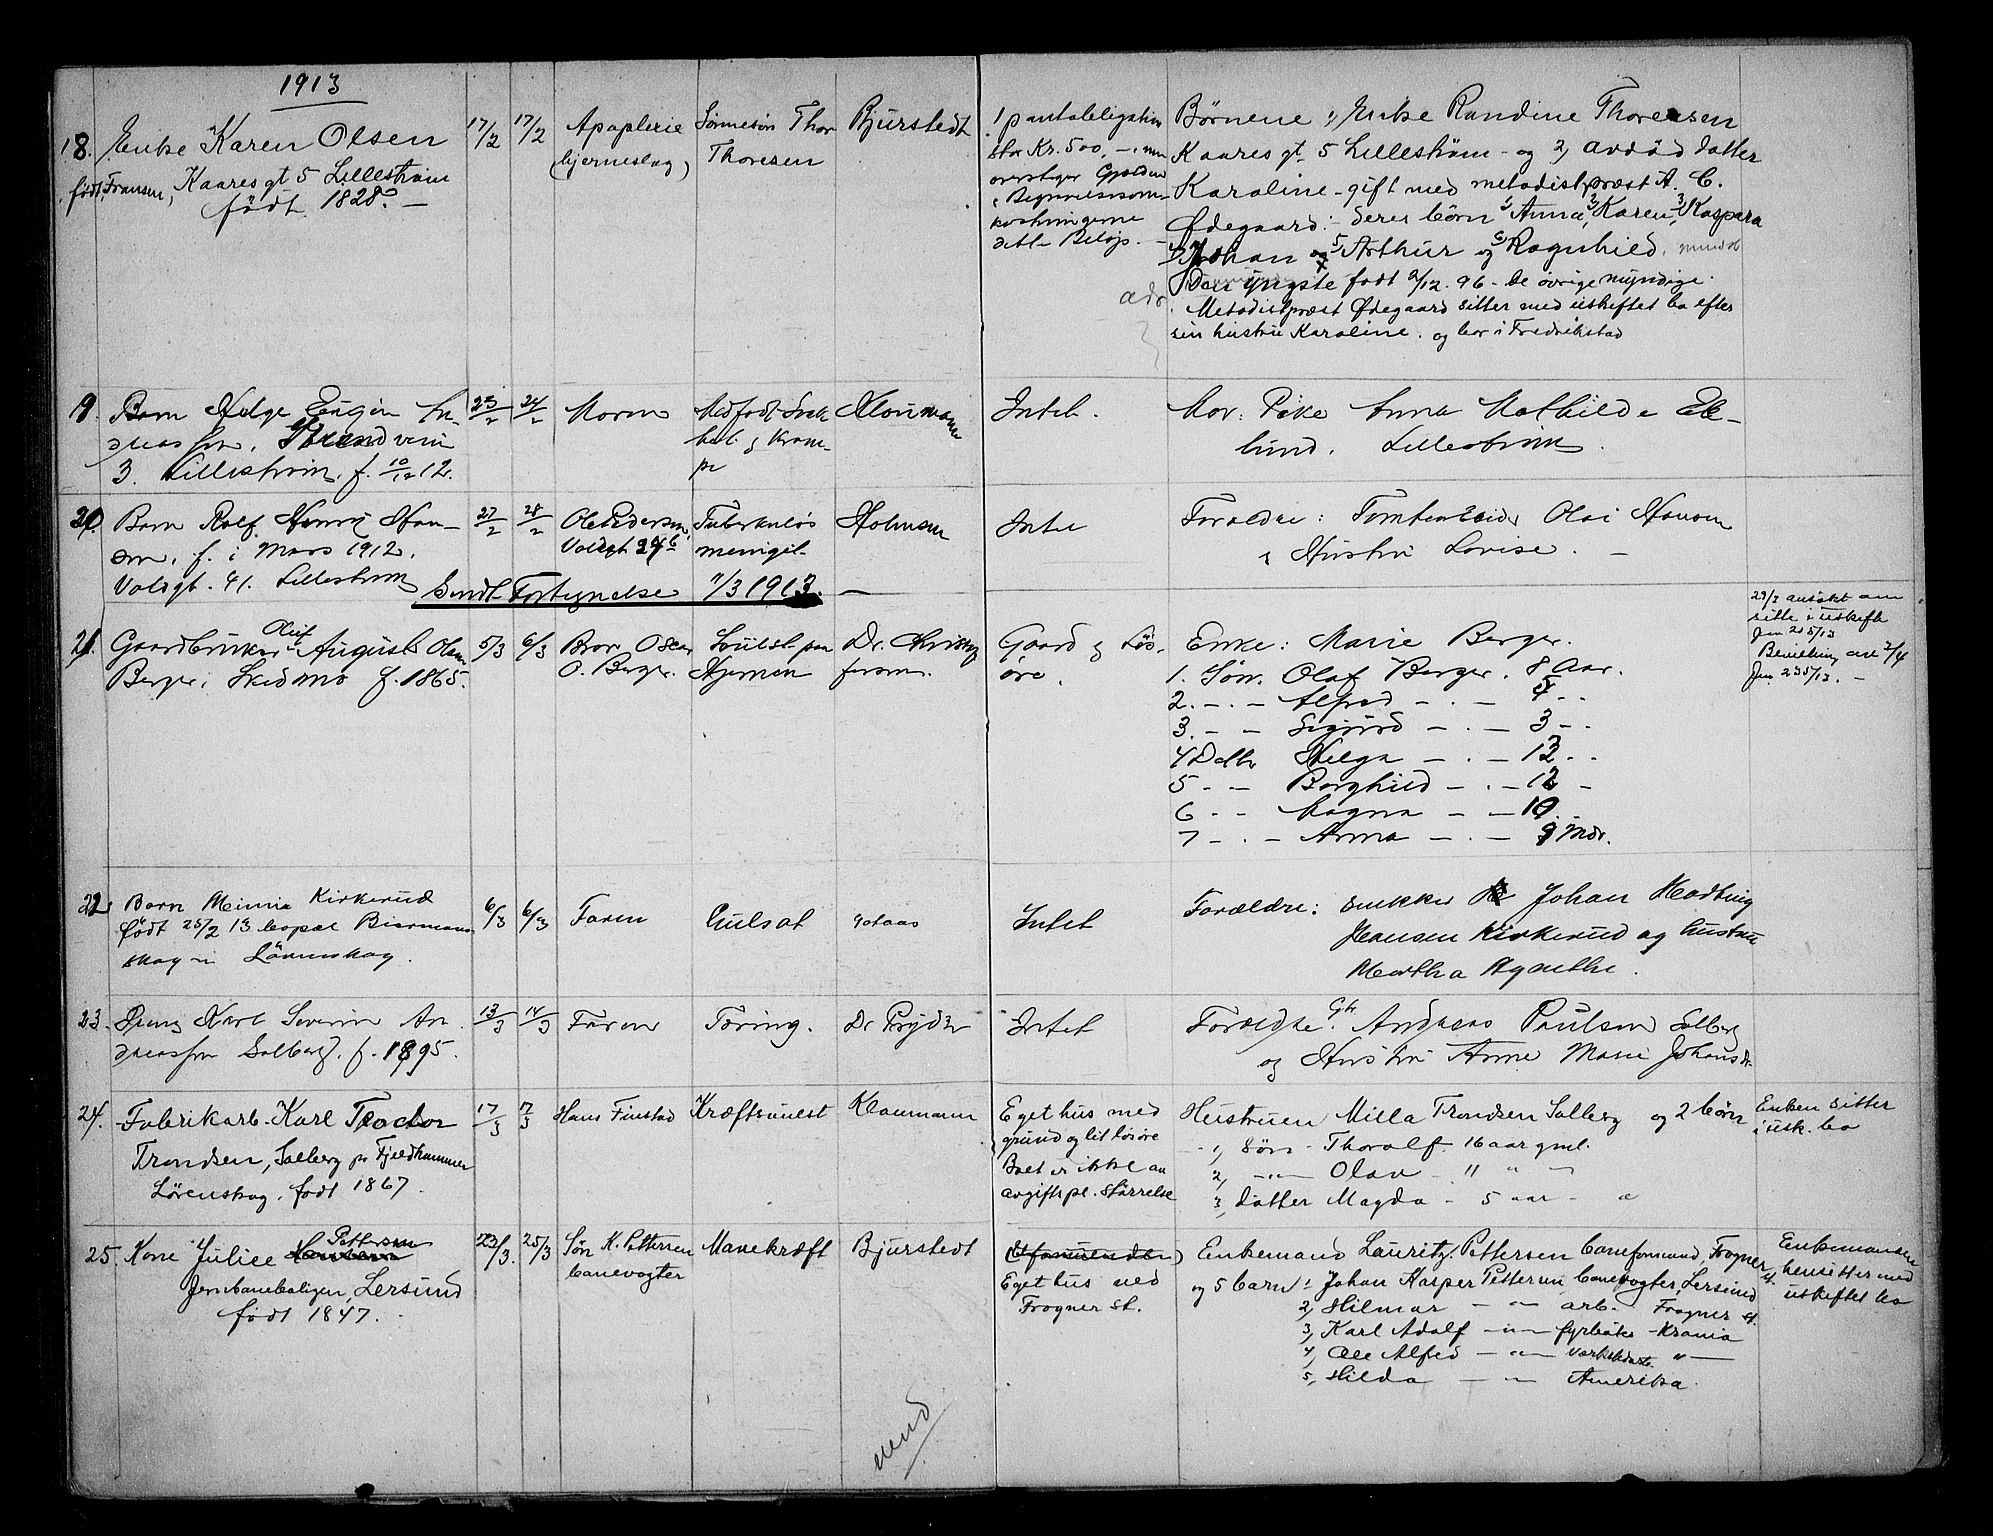 1913
18. Enke Karen Olsen 17/2 17/2 Apoplexie Sønnesøn Thor Bjurstedt
født Fransen, Kaares gt 5 Lillestrøm (hjerneslag) Thoresen
født 1828? —
1 pantobligation
stor Kr. 500, — men
overstiger Gjælden
Begravelsesom-
kostningerne
dette Beløp. —
Børnene: 1, Enke Randine Thoresen
Kaares gt 5 Lillestrøm - og 2, avdød datter
Karoline - gift med metodistpræst A. C.
Ødegaard: deres børn 1 Anna, 2 Karen, 3 Kaspara
4 Johan og 5 Arthur og 6 Ragnhild.
Den yngste født 2/12. 96 - de øvrige myndige.
Metodistpræst Ødegaard sitter med uskiftet bo efter
sin hustru Karoline. og bor i Fredrikstad
19. Barn Helge Eugen An- 23/2 24/2 Moren Medfødt Svak
dreassen, Strandveien het og Kram-
3. Lillestrøm, f. 10/12 12. pe
Intet. Mor: Pike Anna Mathilde Ek-
lund. Lillestrøm.
20. Barn Rolf Henry Han- 27/2 28/2 Ole Pedersen Tuberkuløs Holmsen
sen, f. i Mars 1912. Voldgt 24 b meningit
Voldgt. 41. Lillestrøm
Intet Forældre: Olai Hansen
& Hustru Lovise. —
Sendt Fortegnelse 1/3 1913. —
21. Gaardbruker Oluf August Olsen 5/3 6/3 Bror Oscar Svulst paa Dr. Christof
Berger, Skedsmo f. 1865. O. Berger. Hjernen fersen.
Gaard og Løs-
øre.
Enke: Marie Berger.
1. Søn. Olaf Berger. 8 Aar.
2. — . — Alfred — . —
3. — — Sigurd — . — 3 — .
4 Dattr Helga — . — 13 . .
5 . — Borghild — . — 12 —
6 . . — Magna — — 10
7 — . — Anna — . — 9 Mdr.
29/3 ansøkt om
sitte i uskifte
Jnr 215/13
Bevilling av 2/4
Jnr. 235/13. —
22 Barn Minnie Kirkerud 6/3 6/3 Faren Gulsot
født 25/2 13 bopæl Bjermans
skog i Lørenskog.
Intet Forældre: snekker Johan Hartvig
Hansen Kirkerud og hustru
Martha Agnethe.
23. Dreng Karl Severin An- 13/3 14/3 Faren Tæring. Dr Prydz
dreassen Solberg. f. 1895.
Intet Forældre: Andreas Paulsen Solberg
og Hustru Anne Marie Johansdr.
24. Fabrikarb. Karl Teodor 17/3 17/3 Hans Finstad Kræftsvulst Kloumann
Trondsen, Solberg pr Fjeldhammer
Lørenskog. født 1867.
Eget hus med
grund og lit løsøre
Boet er ikke av
avgiftspl. størrelse
Hustruen Milla Trondsen Solberg og 2 børn
1, Søn - Thoralf. 16 aar gml.
2, — " — Olav - 11 " "
3, datter Magda - 5 aar - "
Enken sitter
i usk. bo
25. Kone Juliee Pettersen 23/3. 25/3 Søn K. Pettersen Mavekræft Bjurstedt
Jernbaneboligen, Lersund banevogter
født 1847.
Eget hus ved
Frogner St.
Enkemand Lauritz Pettersen baneformand, Frogner st.
og 5 barn: 1 Johan Kasper Pettersen banevogter, Lersund
2, Hilmar — " — arb. Frogner st.
3, Karl Adolf — " — fyrbøter - Krania
4, Ole Alfred — " — verkstedarb. " —
5, Hilda — " — Amerika.
Enkemanden
hensitter med
uskiftet bo